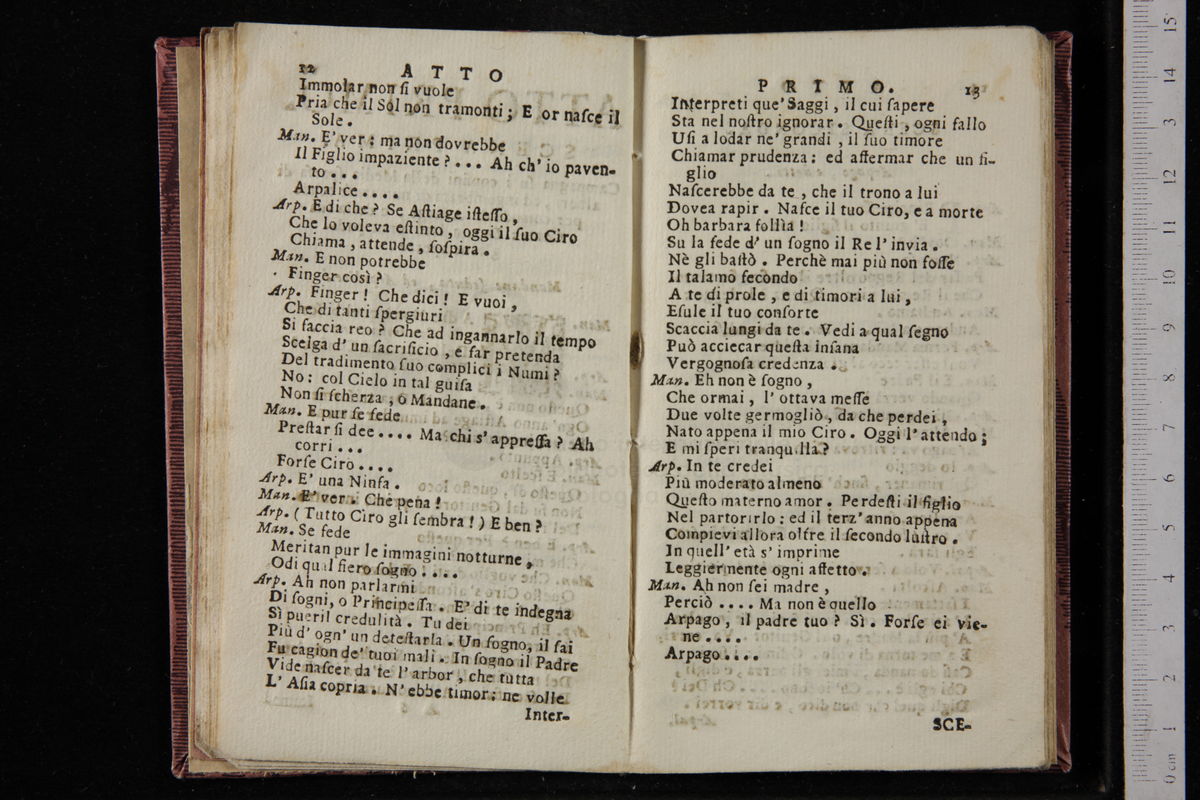 12 ATTO
Immolar non ſi vuole
Pria che il Sol non tramonti; E or naſce il
Sole.
Man. E' ver: ma non dovrebbe
Il Figlio impaziente?... Ah ch' io paven-
to...
Arpalice....
Arp. E di che? Se Aſtiage iſteſſo,
Che lo voleva eſtinto, oggi il ſuo Ciro
Chiama, attende, ſoſpira.
Man. E non potrebbe
Finger così?
Arp. Finger! Che dici! E vuoi,
Che di tanti ſpergiuri
Si faccia reo? Che ad ingannarlo il tempo
Scelga d' un ſacrificio, e far pretenda
Del tradimento ſuo complici i Numi?
No: col Cielo in tal guiſa
Non ſi ſcherza, o Mandane.
Man. E pur ſe fede
Preſtar ſi dee.... Ma chi s' appreſſa? Ah
corri...
Forſe Ciro....
Arp. E' una Ninfa.
Man. E' ver. Che pena!
Arp. (Tutto Ciro gli ſembra!) E ben?
Man. Se fede
Meritan pur le immagini notturne,
Odi qual fiero ſogno....
Arp. Ah non parlarmi
Di ſogni, o Principeſſa. E' di te indegna
Sì pueril credulità. Tu dei
Più d' ogn' un deteſtarla. Un ſogno, il ſai
Fu cagion de' tuoi mali. In ſogno il Padre
Vide naſcer da te l' arbor, che tutta
L' Aſia copria. N' ebbe timor: ne volle
Inter-
PRIMO. 13
Interpreti que' Saggi, il cui ſapere
Sta nel noſtro ignorar. Queſti, ogni fallo
Uſi a lodar ne' grandi, il ſuo timore
Chiamar prudenza: ed affermar che un fi-
glio
Naſcerebbe da te, che il trono a lui
Dovea rapir. Naſce il tuo Ciro, e a morte
Oh barbara follìa!
Su la fede d' un ſogno il Re l' invia.
Nè gli baſtò. Perchè mai più non foſſe
Il talamo fecondo
A te di prole, e di timori a lui,
Eſule il tuo conſorte
Scaccia lungi da te. Vedi a qual ſegno
Può acciecar queſta inſana
Vergognoſa credenza.
Man. Eh non è ſogno,
Che ormai, l' ottava meſſe
Due volte germogliò, da che perdei,
Nato appena il mio Ciro. Oggi l' attendo;
E mi ſperi tranquilla?
Arp. In te credei
Più moderato almeno
Queſto materno amor. Perdeſti il figlio
Nel partorirlo: ed il terz' anno appena
Compievi allora oltre il ſecondo luſtro.
In quell' età s' imprime
Leggiermente ogni affetto.
Man. Ah non ſei madre,
Perciò.... Ma non è quello
Arpago, il padre tuo? Sì. Forſe ei vie-
ne....
Arpago....
SCE-